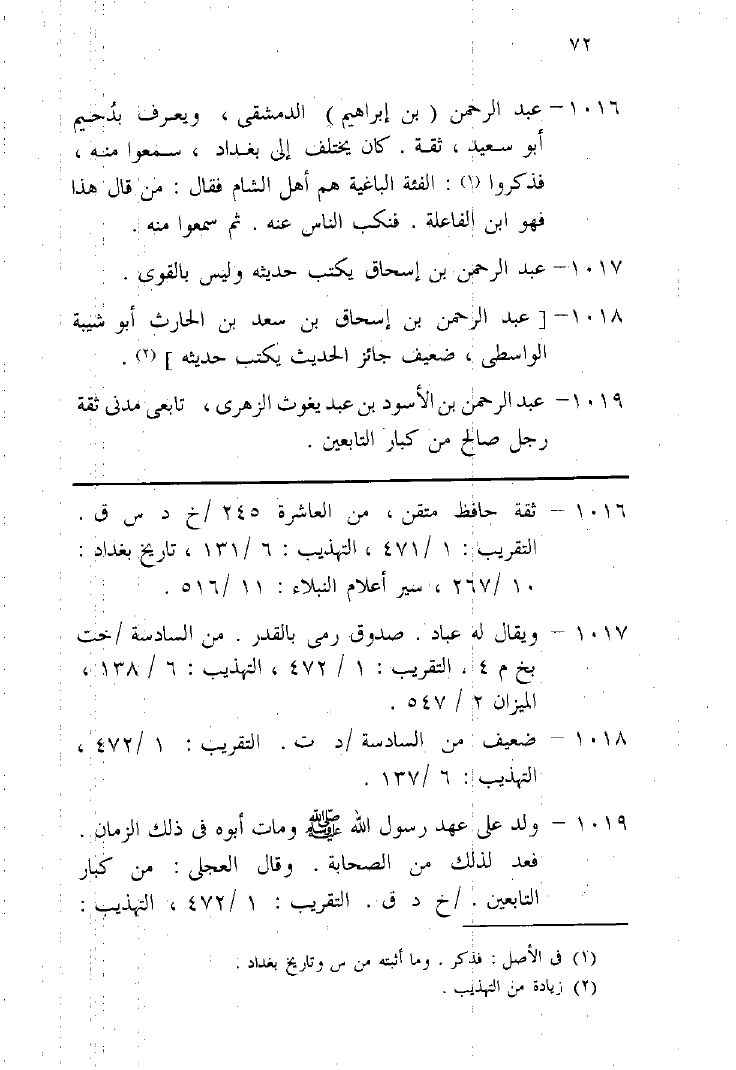 ٧٢
١٠١٦- عبد الرحمن ( بن إبراهيم ) الدمشقى ، ويعرف بدُحيم
أبو سعيد ، ثقة . كان يختلف إلى بغداد ، سمعوا منه ،
فذكروا (١) : الفئة الباغية هم أهل الشام فقال : من قال هذا
فهو ابن الفاعلة . فنكب الناس عنه . ثم سمعوا منه .
١٠١٧- عبد الرحمن بن إسحاق يكتب حديثه وليس بالقوى .
١٠١٨- [ عبد الرحمن بن إسحاق بن سعد بن الحارث أبو شيبة
الواسطى ، ضعيف جائز الحديث يكتب حديثه ] (٢) .
١٠١٩- عبد الرحمن بن الأسود بن عبد يغوث الزهرى ، تابعى مدنى ثقة
رجل صالح من كبار التابعين .
١٠١٦ - ثقة حافظ متقن ، من العاشرة ٢٤٥ /خ د س ق .
التقريب : ١ /٤٧١ ، التهذيب : ٦ /١٣١ ، تاريخ بغداد :
١٠ /٢٦٧ ، سير أعلام النبلاء : ١١ /٥١٦ .
١٠١٧ - ويقال له عباد . صدوق رمى بالقدر . من السادسة /خت
بخ م ٤ . التقريب : ١ / ٤٧٢ ، التهذيب : ٦ / ١٣٨ ،
الميزان ٢ / ٥٤٧ .
١٠١٨ - ضعيف من السادسة /د ت . التقريب : ١ /٤٧٢ ،
التهذيب : ٦ /١٣٧ .
١٠١٩ - ولد على عهد رسول الله ﷺ ومات أبوه فى ذلك الزمان .
فعد لذلك من الصحابة . وقال العجلى : من كبار
التابعين . /خ د ق . التقريب : ١ /٤٧٢ ، التهذيب :
(١) فى الأصل : فذكر . وما أثبته من س وتاريخ بغداد .
(٢) زيادة من التهذيب .